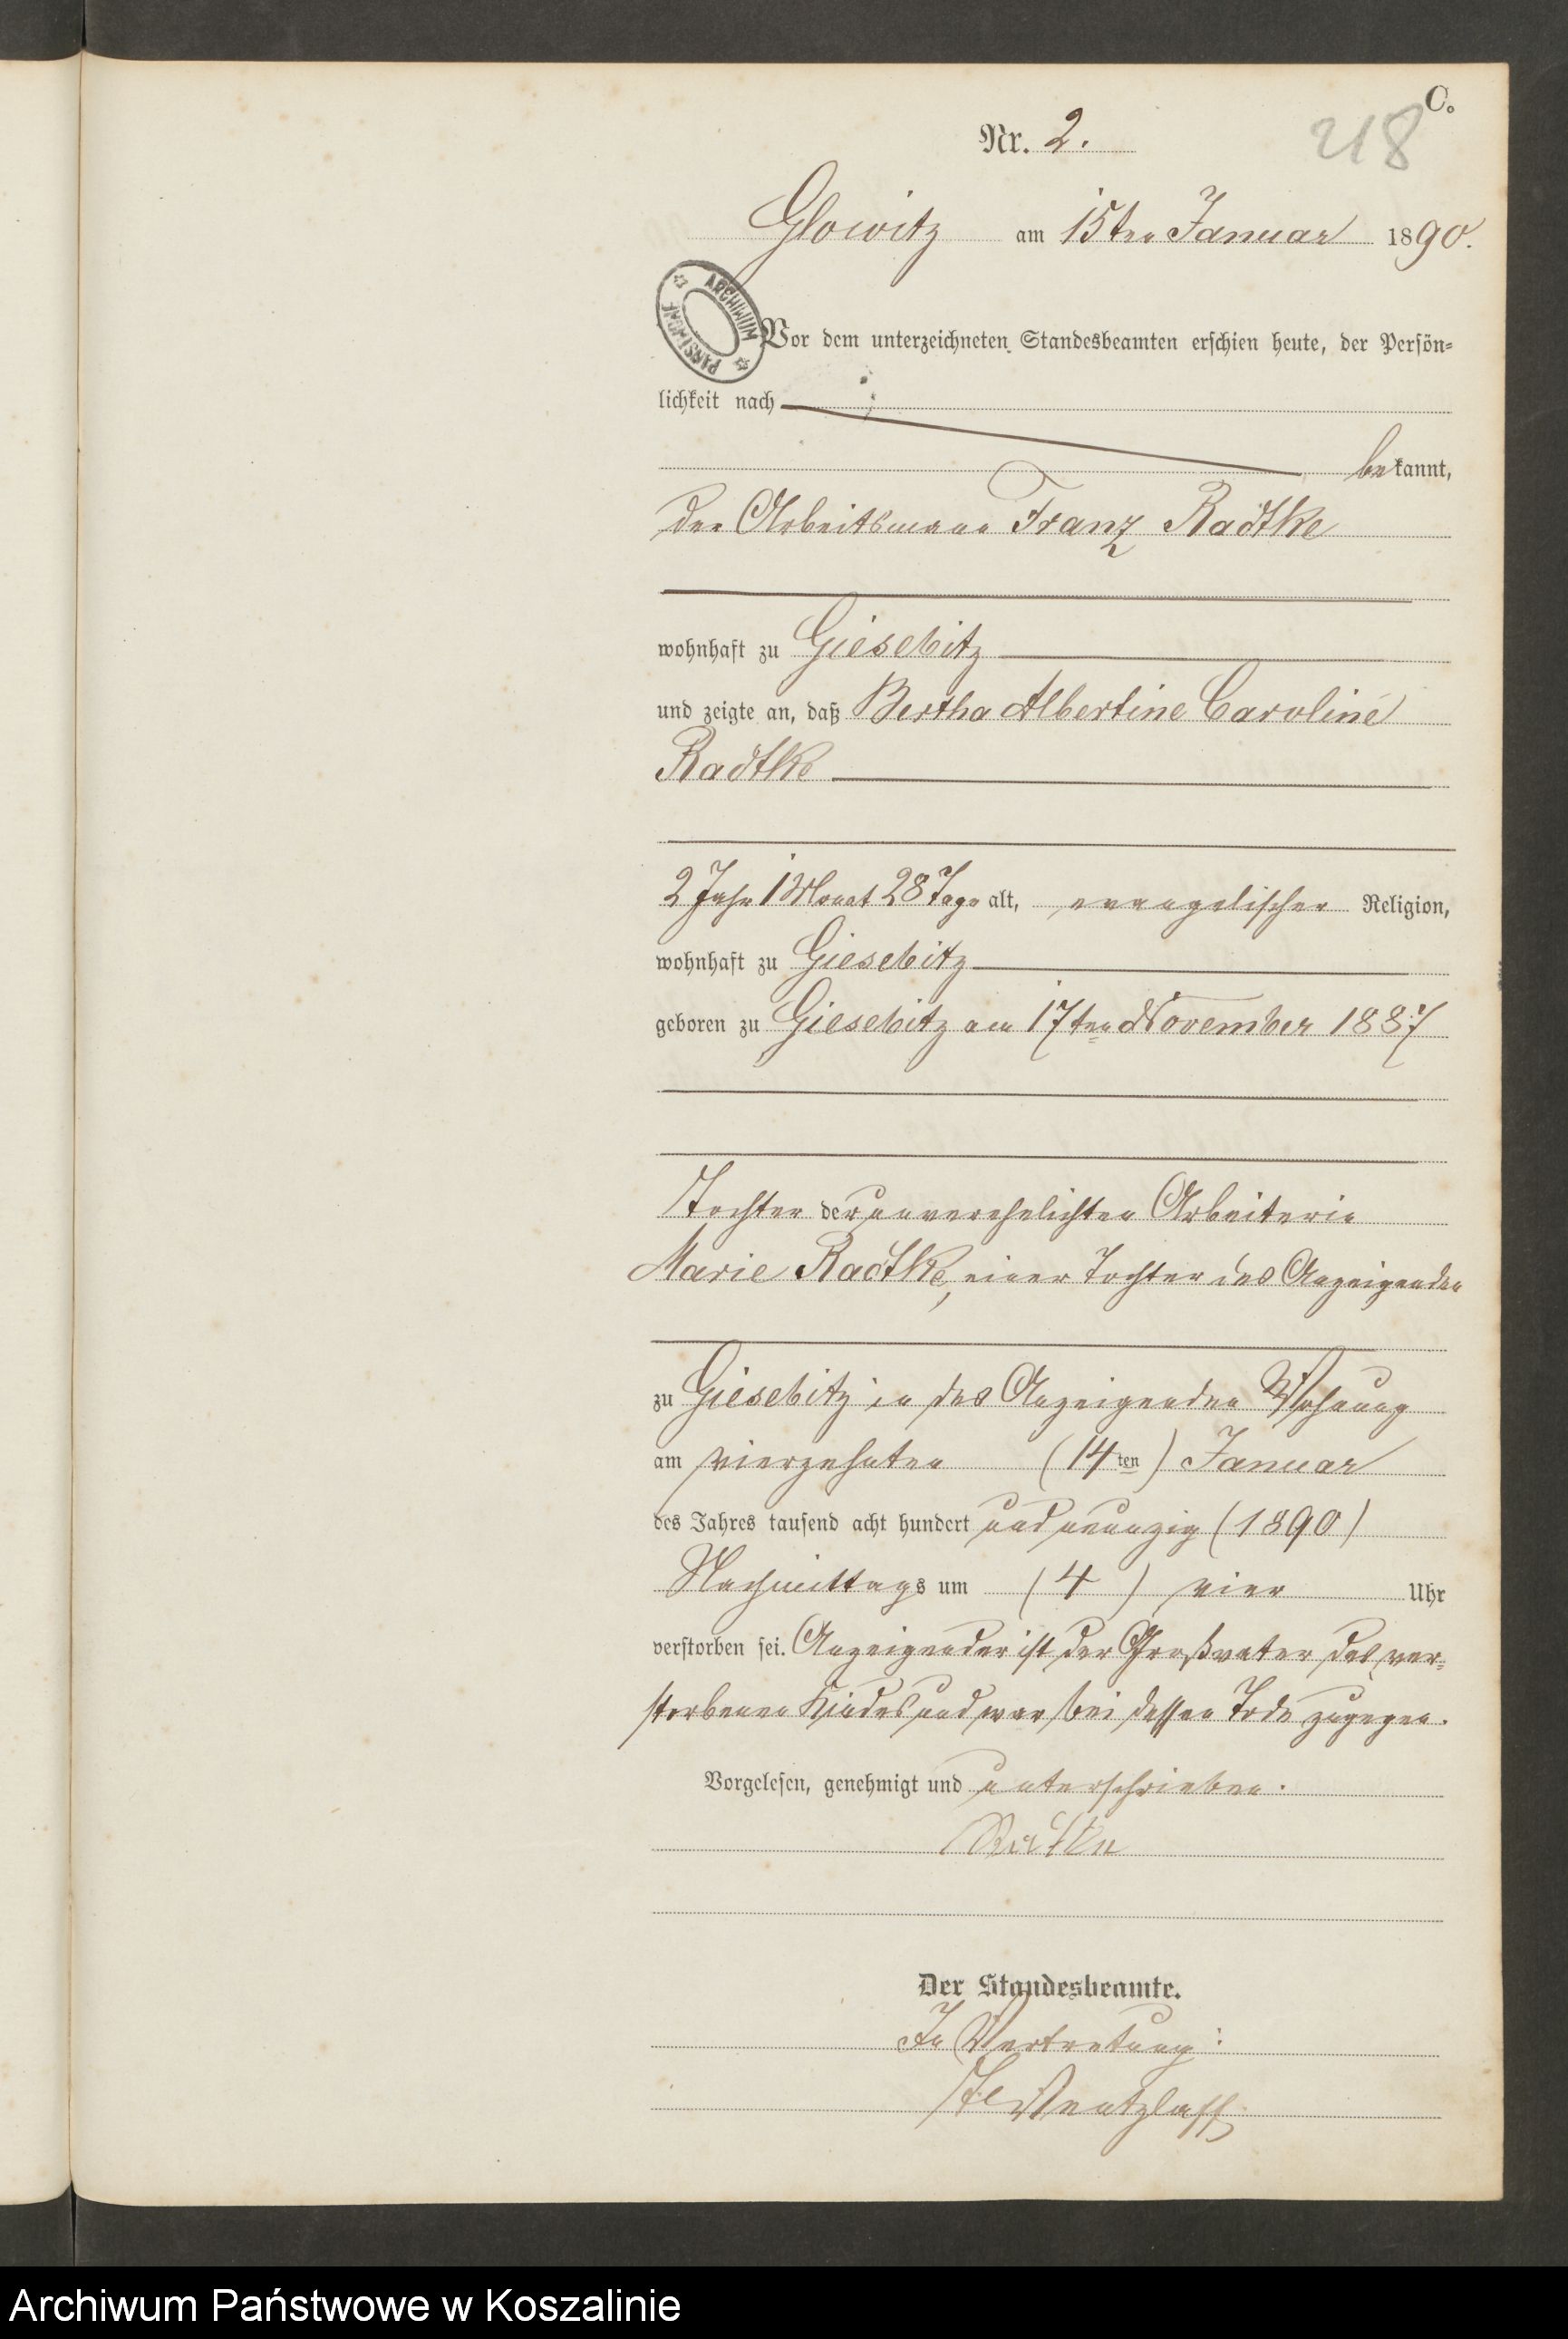 C.
218
Nr. 2.
Glowitz am 15ten Januar 1890.
ARCHIWUM PAŃSTWOWE
Vor dem unterzeichneten Standesbeamten erschien heute, der Persön=
lichkeit nach
bekannt,
der Arbeitsmann Franz Radtke
wohnhaft zu Giesebitz
und zeigte an, daß Bertha Albertine Caroline
Radtke
2 Jahr 1 Monat 28 Tage alt, evangelischer Religion,
wohnhaft zu Giesebitz
geboren zu Giesebitz am 17ten November 1887
Tochter der unverehelichten Arbeiterin
Marie Radtke, einer Tochter des Anzeigenden
zu Giesebitz in des Anzeigenden Wohnung
am vierzehnten (14ten) Januar
des Jahres tausend acht hundert und neunzig (1890)
Nachmittags um (4) vier Uhr
verstorben sei. Anzeigender ist der Großvater des ver=
storbenen Kindes und war bei dessen Tode zugegen.
Vorgelesen, genehmigt und unterschrieben.
Der Standesbeamte.
In Vertretung:
Wentzlaff
Archiwum Państwowe w Koszalinie